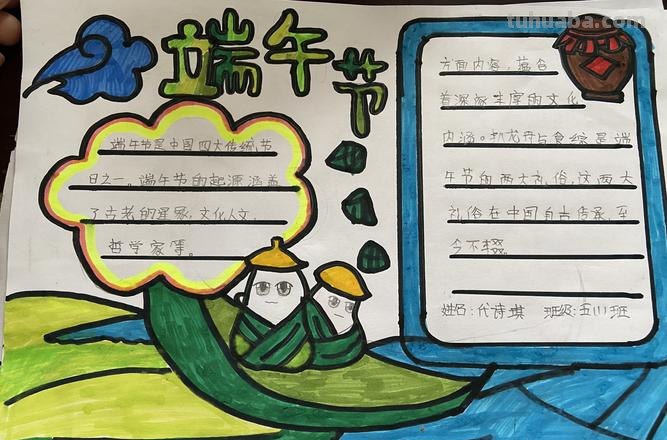 tuhuaba.com
端午节
端午节是中国四大传统节
日之一。端午节的起源涵盖
了古老的星象文化、人文
哲学家等。
方面内容,蕴含
着深邃丰厚的文化
内涵。扒龙舟与食粽是端
午节的两大礼俗,这两大
礼俗在中国自古传承,至
今不辍。
姓名:代诗琪 班级:五(1)班